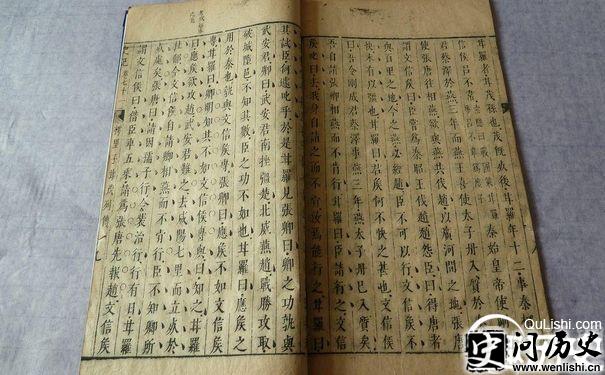 甘羅者甘茂孫也茂既死後甘羅年十二事秦
信侯呂不韋 秦始皇帝使剛
君蔡澤於燕三年而燕王喜使太子丹入質於
使張唐往相燕欲與燕共伐趙以廣河間之地張
謂文信侯曰臣嘗爲秦昭王伐趙趙怨臣曰得唐者
與百里之地今之燕必經趙臣不可以行文信侯不
快未有以强也甘羅曰君侯何不快之甚也文信侯
曰吾令剛成君蔡澤事燕三年燕太子丹已入質矣
吾自請張卿相燕而不肯行甘羅曰臣請行之文信
侯叱曰去我身自請之而不肯汝焉能行之甘羅曰
其試臣何遽叱乎於是甘羅見張卿曰卿之功孰與
武安君卿曰武安君南挫彊楚北威燕趙戰勝攻取
破城墮邑不知其數臣之功不如也甘羅曰應侯之
用於秦也孰與文信侯專張卿曰應侯不如文信侯
專甘羅曰卿明知其不如文信侯專與曰知之甘羅
曰應侯欲攻趙武安君難之去咸陽七里而立死於
杜郵今文信侯自請卿相燕而不肯行臣不知卿所
死處矣張唐曰請因孺子行令裝治行行有日甘羅
謂文信侯曰借臣車五乘請爲張唐先報趙文信侯
樗里子甘茂列傳
QuLishi.com
问历史
www.wenlishi.cn